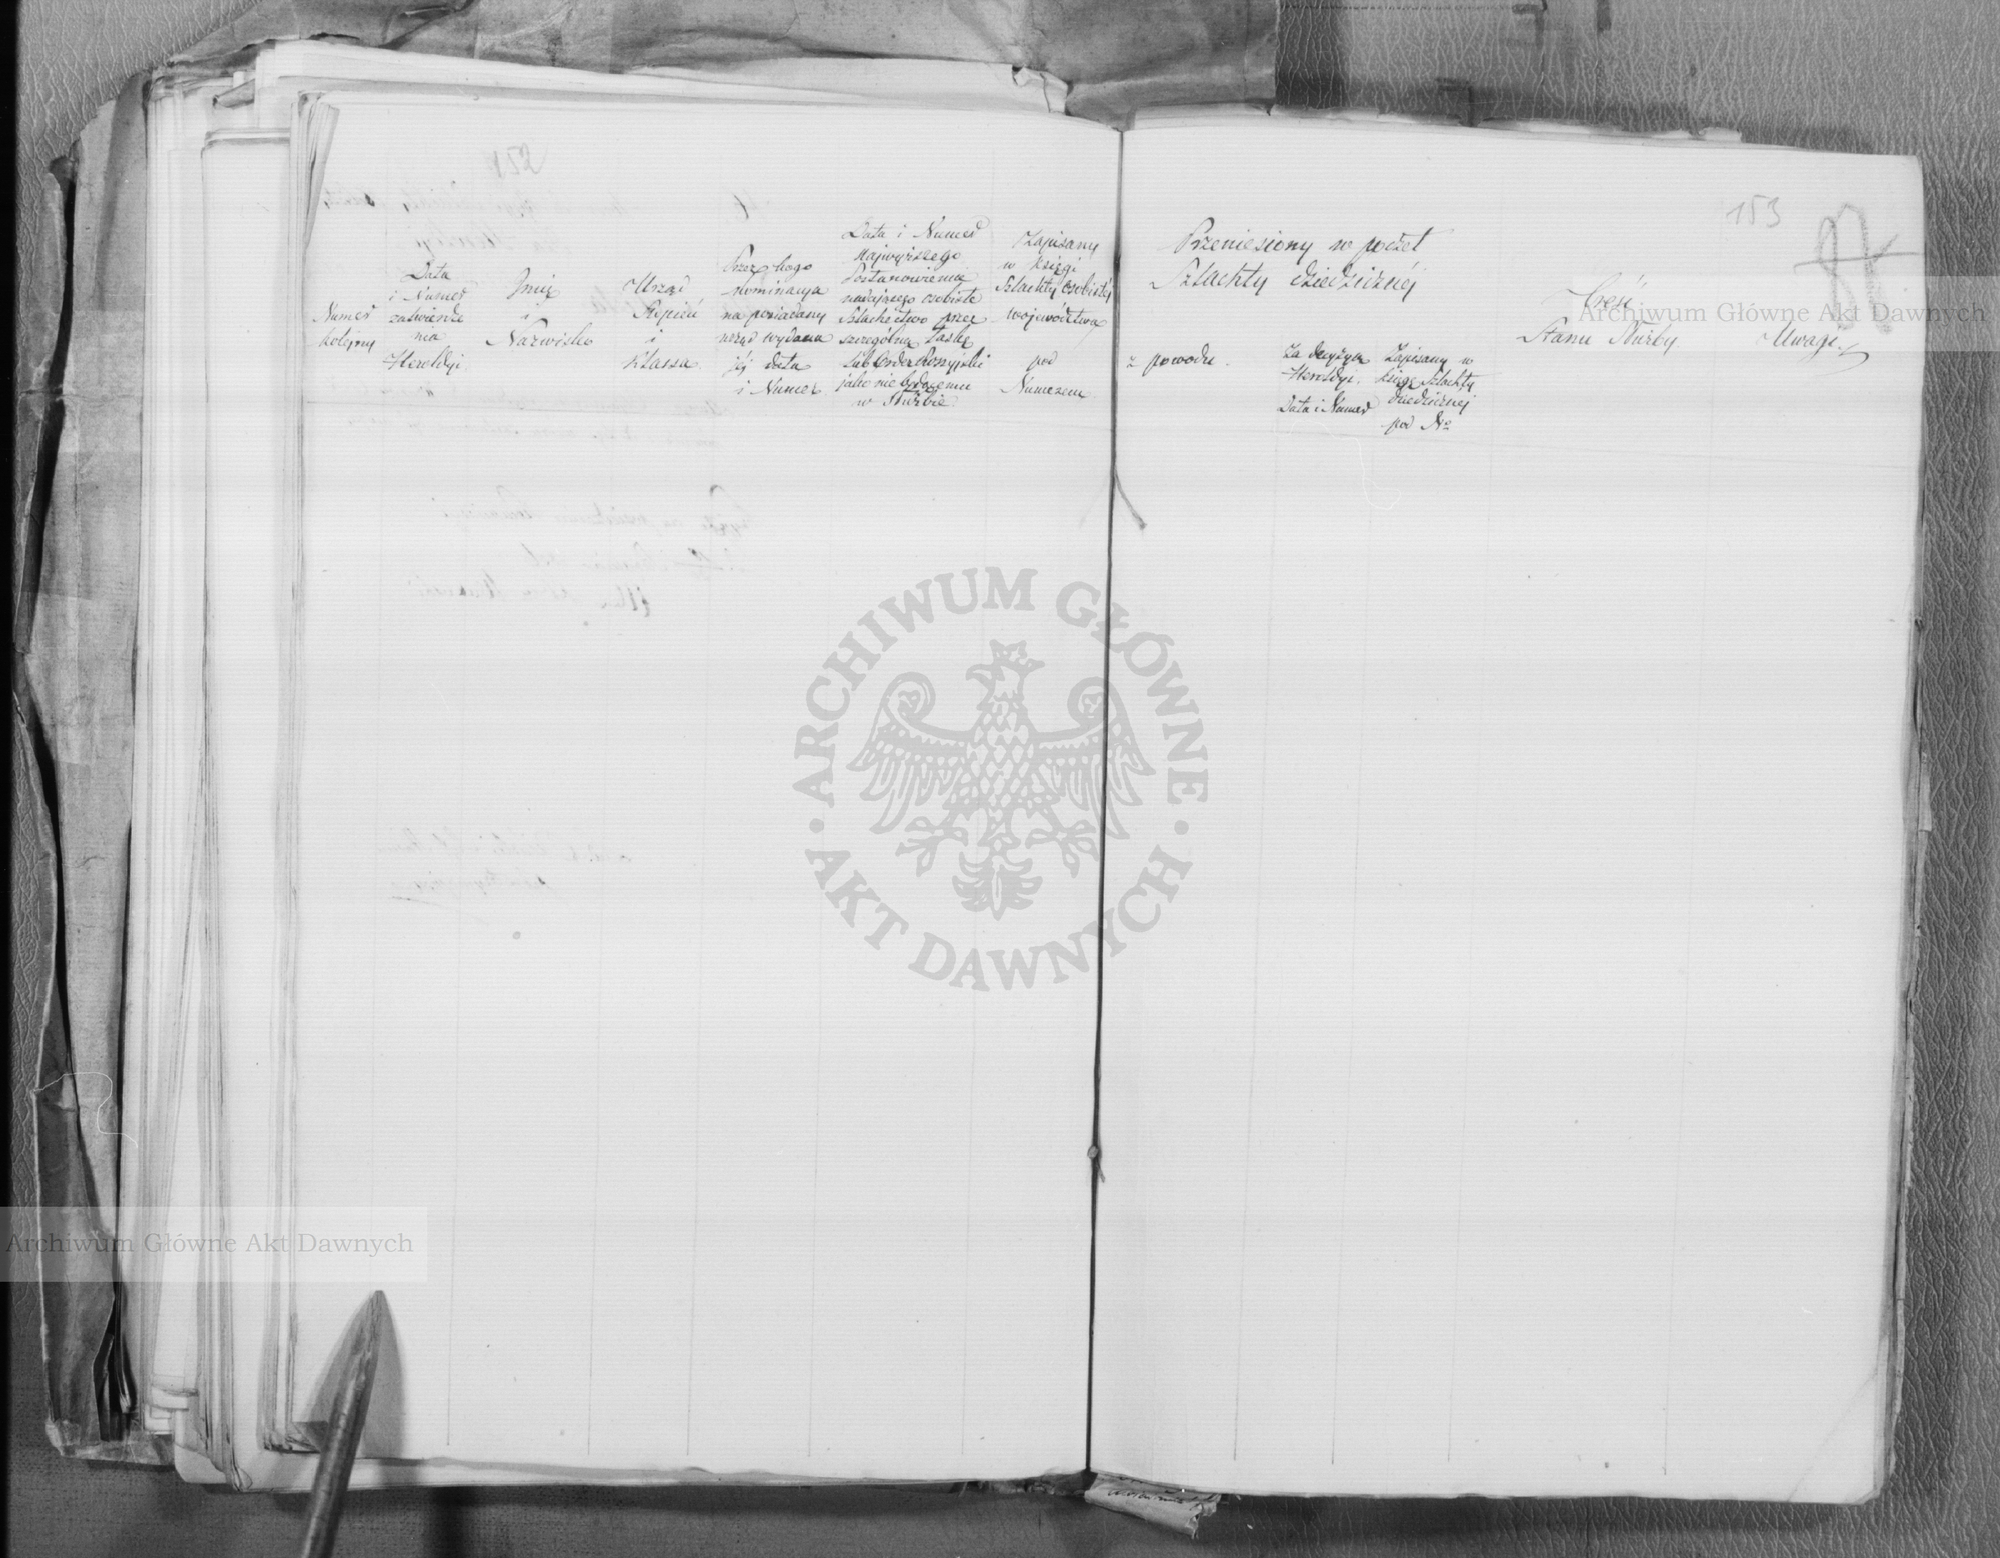 153
Numer
kolejny
Data
i Numer
zatwierdze
nia
Heroldyi
Imię
i
Nazwisko
Urząd
Stopień
i
Klassa
Przez kogo
nominacya
na posiadany
urząd wydana
jéj data
i Numer
Data i Numer
Najwyższego
Postanowienia
nadającego osobiste
Szlachectwo przez
szczególną Łaskę
lub Order Rossyjski
jako nie będącemu
w Służbie
Zapisany
w księgi
Szlachty osobistéj
Województwa
pod
Numerem
Przeniesiony w poczet
Szlachty dziedzicznéj
z powodu
Za decyzyą
Heroldyi
Data i Numer
Zapisany w
księgę Szlachty
dziedzicznej
pod No
Treść
Stanu Służby
Uwagi
Archiwum Główne Akt Dawnych
ARCHIWUM GŁÓWNE
AKT DAWNYCH
Archiwum Główne Akt Dawnych